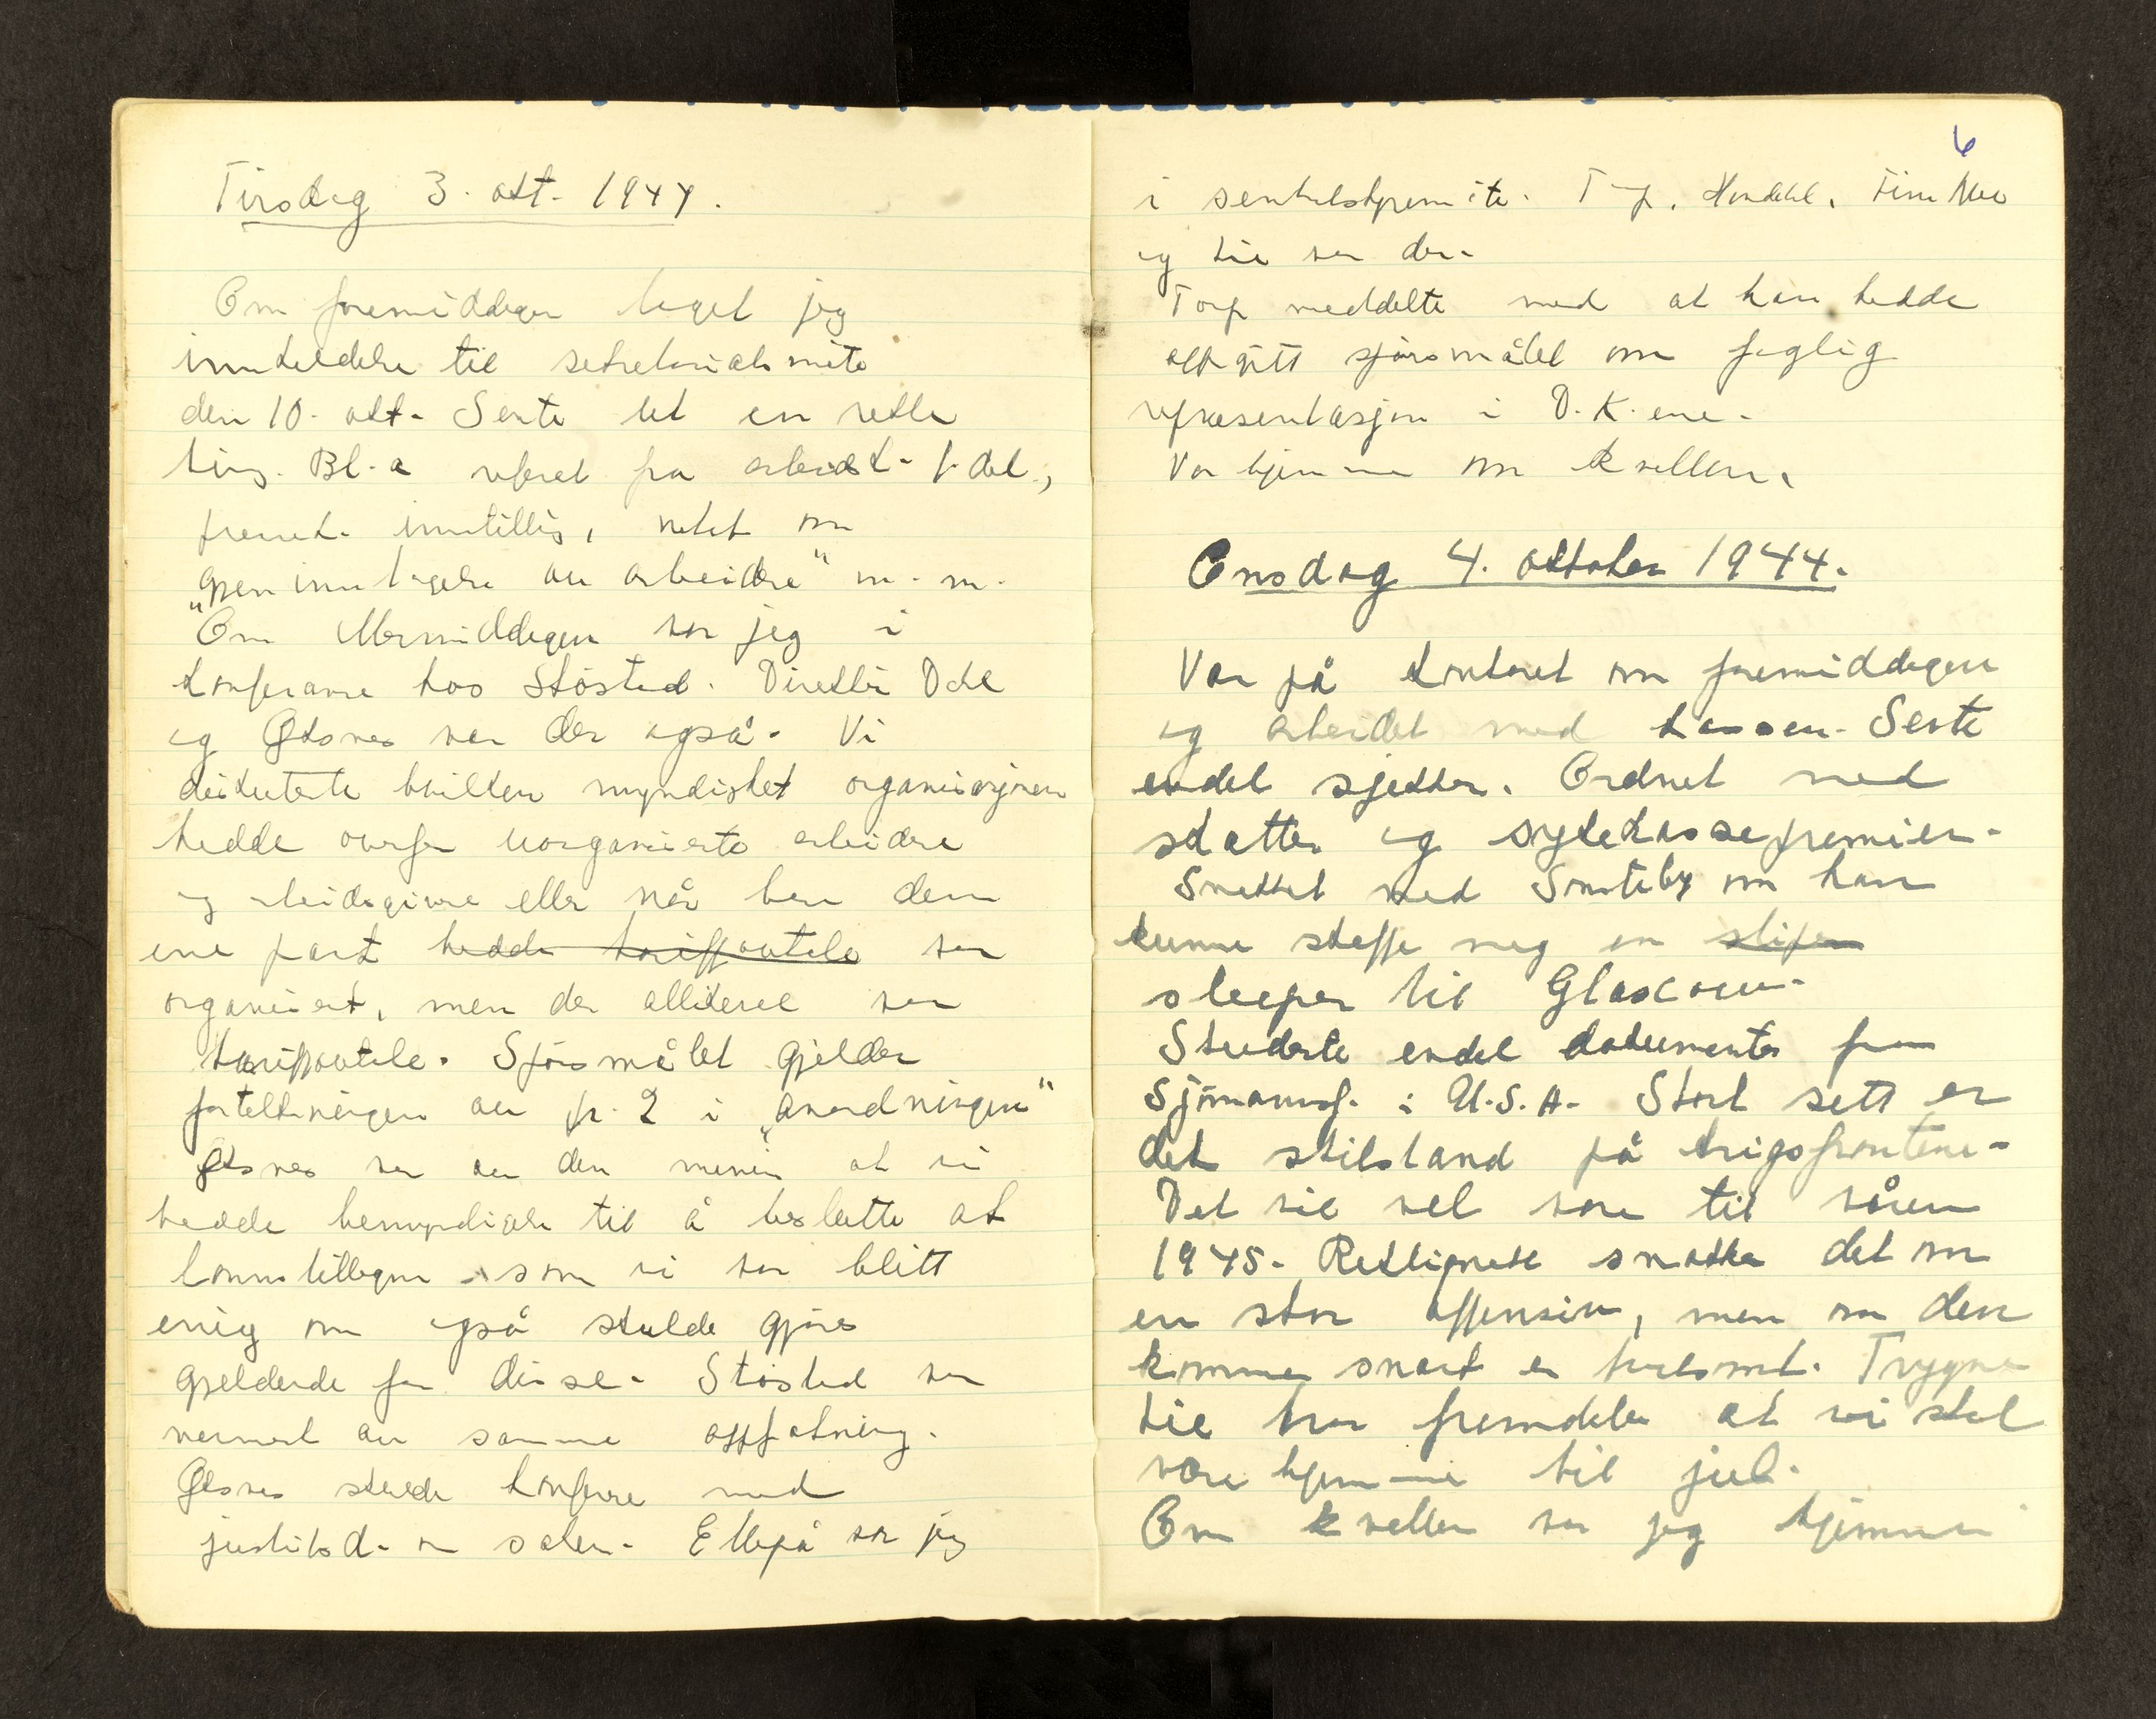 Tirsdag 3. okt. 1944.
Om formiddagen laget jeg
innkaldelse til sekretariatsmøte
den 10. okt. Sente ut en rekke
ting. Bl.a referat fra arbeidst. f. del.,
fremst. innstilling, notat om
"gjeninntagelse av arbeidere" m. m.
Om ettermiddagen var jeg i
konferanse hos Støstad. Direktør Dahl
og Oksnes var der også. Vi
diskuterte hvilken myndighet organisasjonen
hadde overfor uorganiserte arbeidere
og arbeidsgivere eller når bare den
ene part hadde tariffavtale var
organisert, men der allikevel var
tariffavtale. Spørsmålet gjelder
fortolkningen av p. 2 i "anordningen"
Oksnes var av den mening at vi
hadde bemyndigelse til å beslutte at
lønnstilleggene som vi var blitt
enig om også skulde gjøres
gjeldende for disse. Støstad var
nærmest av samme oppfatning.
Oksnes skulde konferere med
justisd. om saken. Etterpå var jeg
6
i sentralstyremøte. Torp, Hindahl, Finn Moe
og Lie var der.
Torp meddelte med at han hadde
oppgitt spørsmålet om faglig
representasjon i D.K. ene.
Var hjemme om kvelden.
Onsdag 4. oktober 1944.
Var på kontoret om formiddagen
og arbeidet med kassen. Sente
endel sjekker. Ordnet med
skatter og sykekassepremier.
Snakket med Smeteby om han
kunne skaffe meg en slipen
sleeper til Glascow.
Studerte endel dokumenter fra
Sjømannsf. i U.S.A. Stort sett er
det stilstand på krigsfrontene.
Det vil vel vare til våren
1945. Riktignok snakkes det om
en stor offensiv, men om den
kommer snart er tvilsomt. Trygve
Lie tror fremdeles at vi skal
være hjemme til jul.
Om kvellen var jeg hjemme